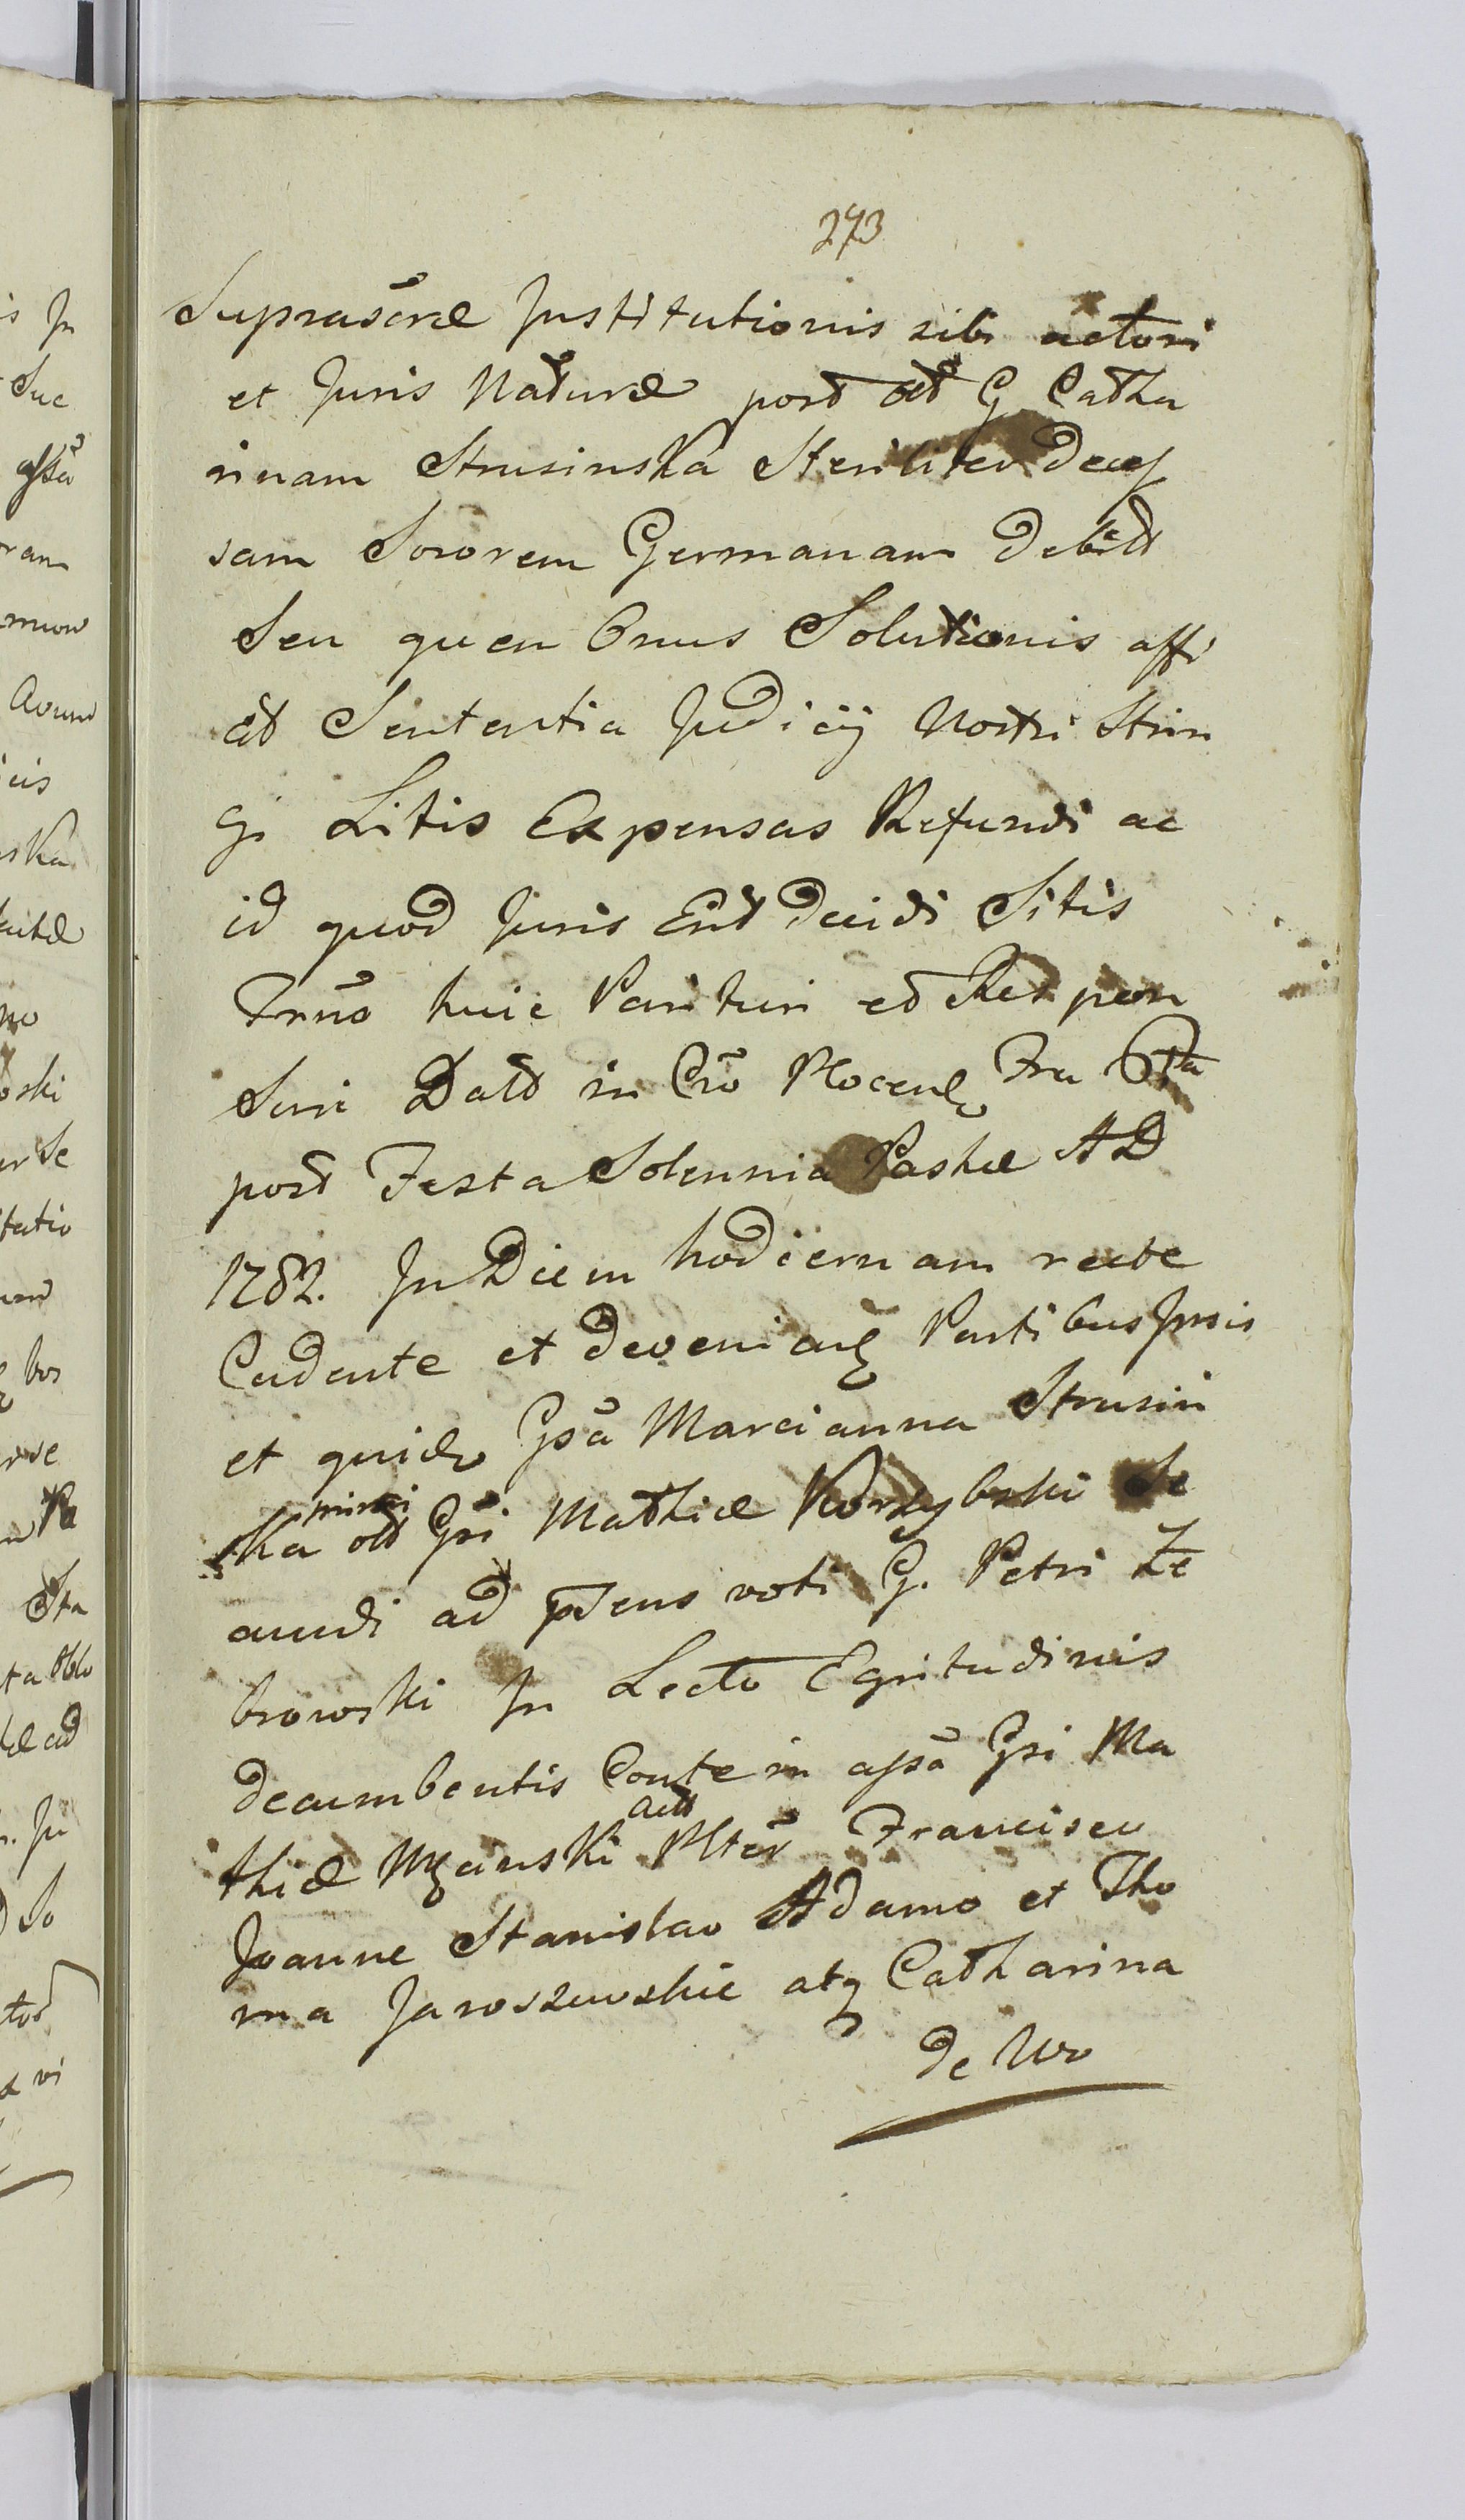 273
Suprascrae Institutionis sibi actori
et Juris Naturae post olt G Catha
rinam Strusinska Steriliter deces
sam Sororem Germanam debitt
Seu quem Onus Solutionis affi
ciet Sententia Judicij Nostri Strin
gi Litis Expensas Refundi ac
id quod Juris Erit decidi Sitis
Trno huic Parituri et Respon
suri Datt in Cro Plocens Fra 6ta
post Festa Solennia Paschae AD
1782. In Diem hodiernam recte
Cadente et deveniente Partibus Ipsis
et quidem Gsa Marcianna Strusin
ska olt Gsi Mathiae Korzybski Se
primi
cundi ad psens voti G. Petri Ze
browski In Lecto Egritudinis
decumbentis Conte in assa Gsi Ma
thiae Mzanski Pltes Francisco
actt
Joanne Stanislao Adamo et Tho
ma Jaroszewskie atq Catharina
de Wo